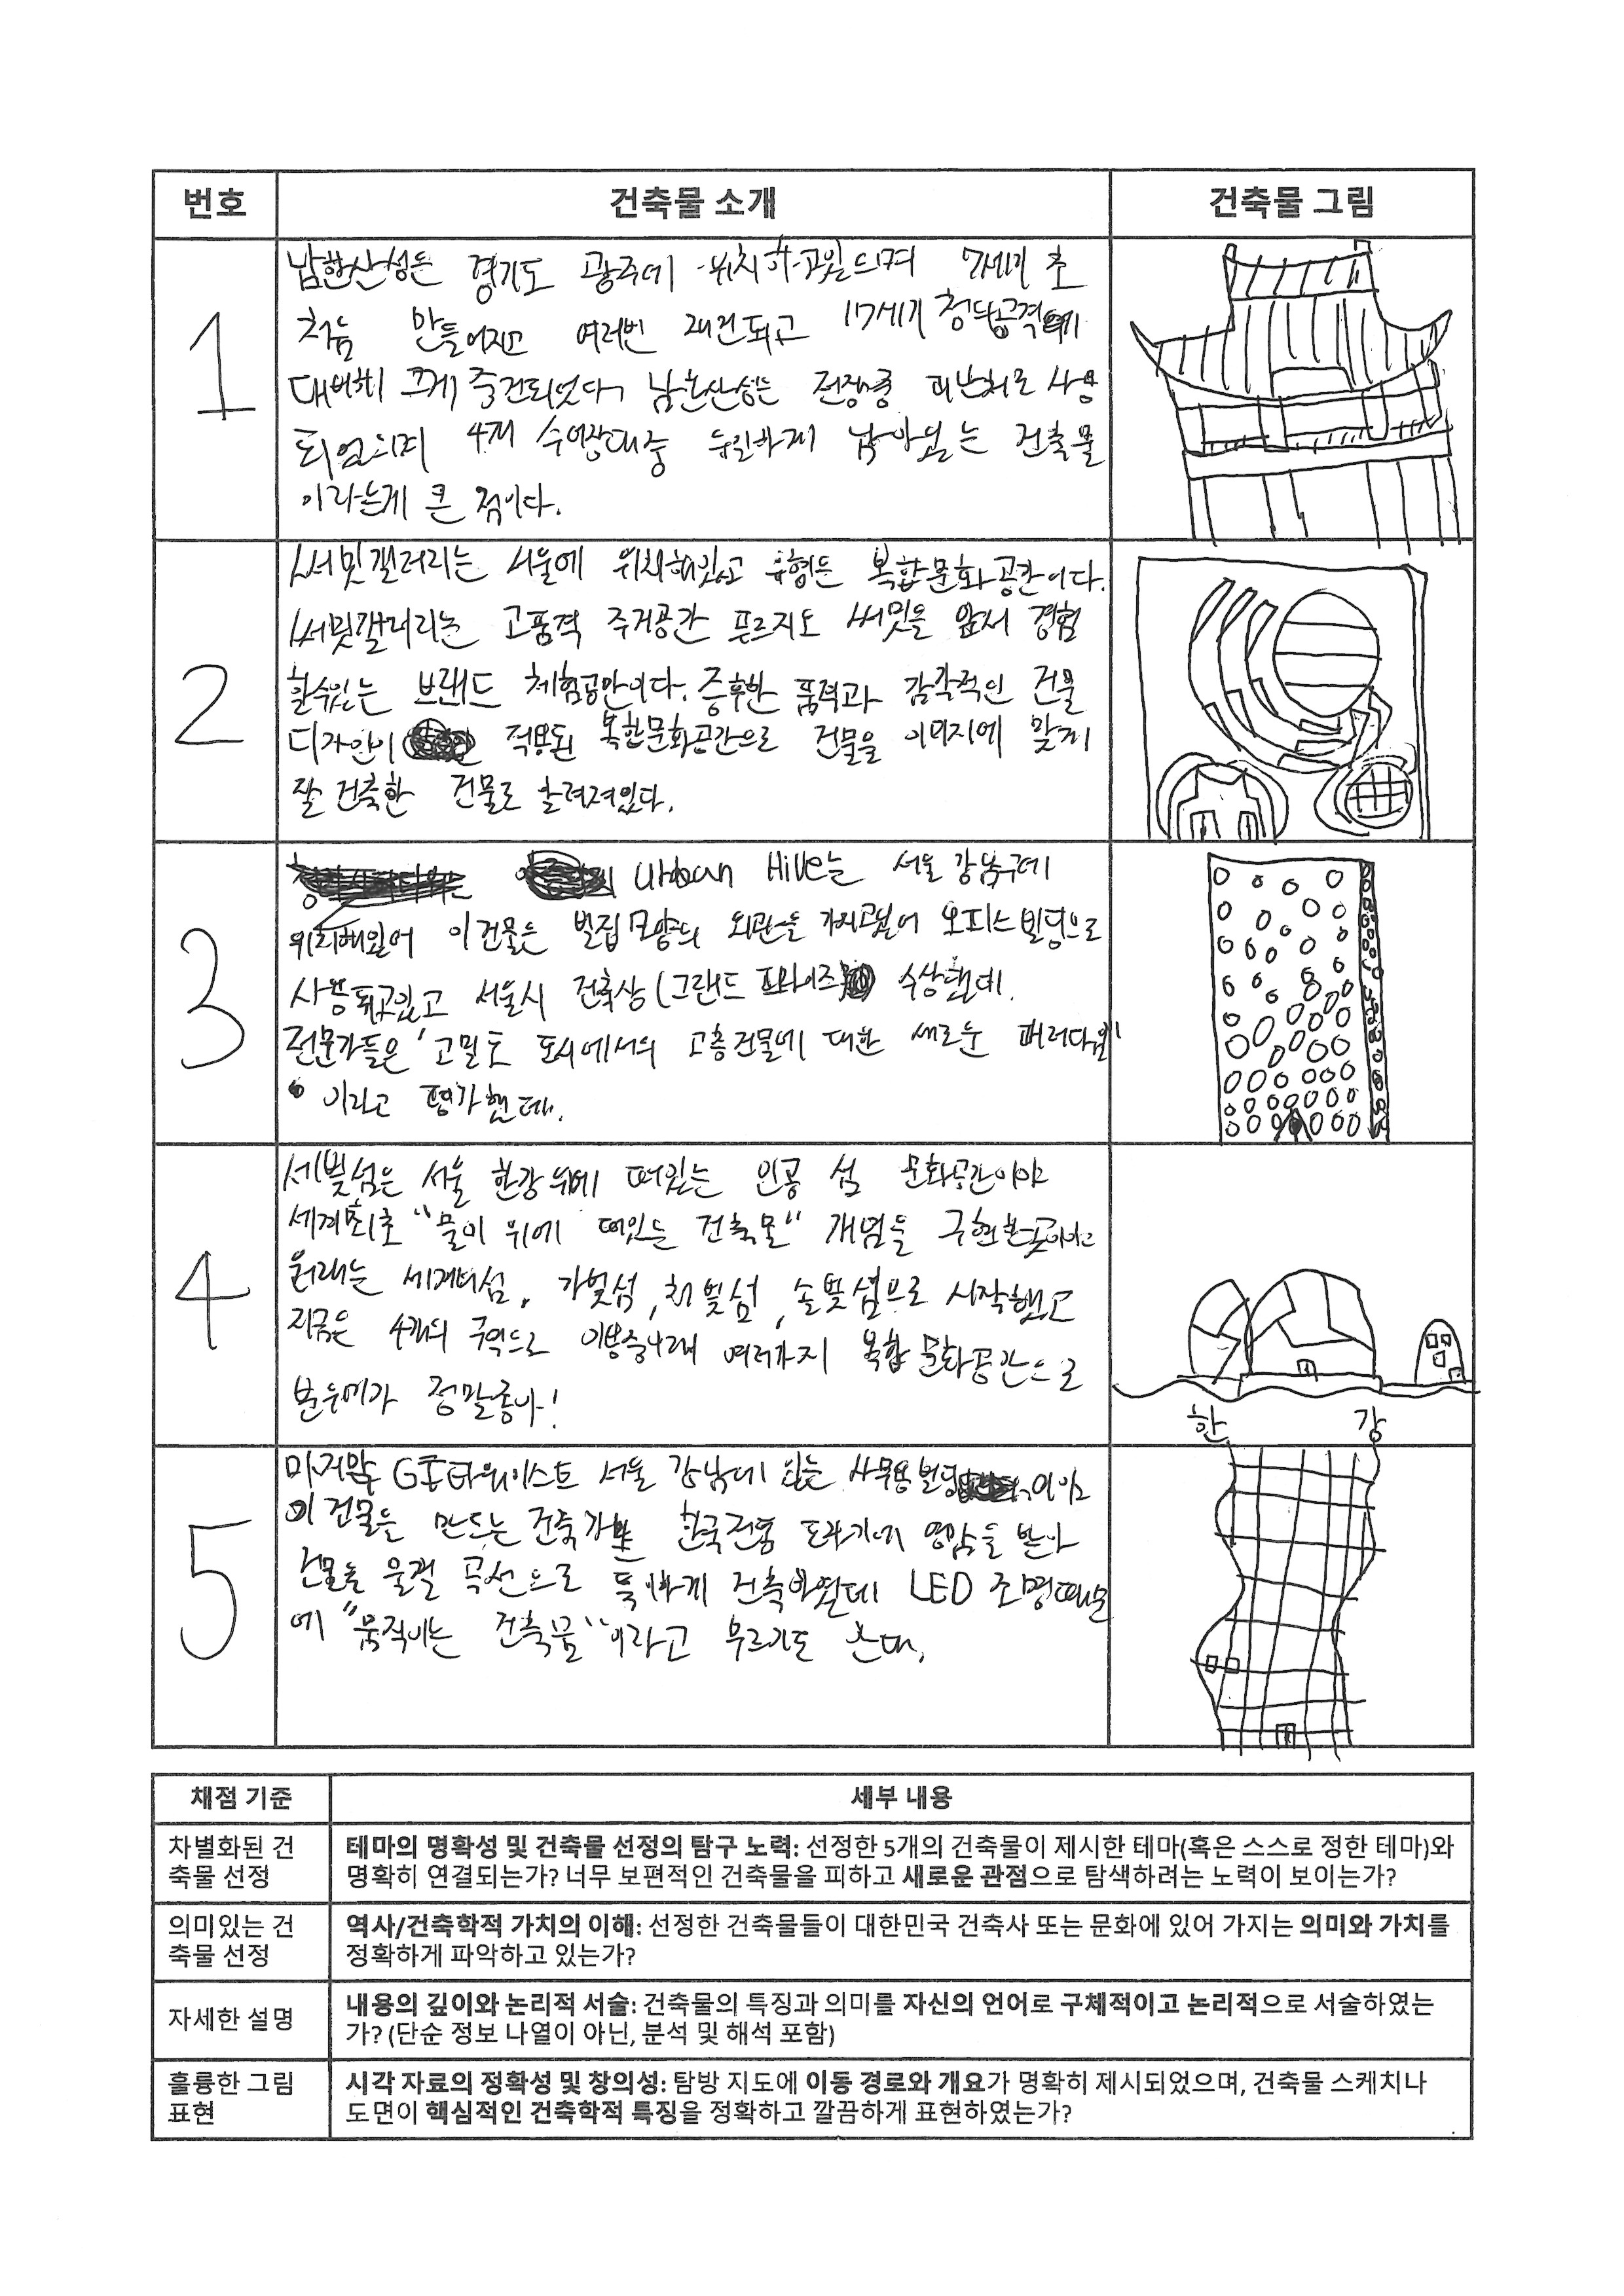 번호
건축물 소개
건축물 그림
1
남한산성은 경기도 광주에 위치하고있으며 7세기 초
처음 만들어지고 여러번 재건되고 17세기 청의공격에
대비해 크게 중건되었다 남한산성은 전쟁중 피난처로 사용
되었으며 4개 수어장대중 유일하게 남아있는 건축물
이라는게 큰 점이다.
2
써밋갤러리는 서울에 위치해있고 유형은 복합문화공간이다.
써밋갤러리는 고품격 주거공간 푸르지오 써밋을 앞서 경험
할수있는 브랜드 체험공간이다. 중후한 품격과 감각적인 건물
디자인이 적용된 복합문화공간으로 건물을 이미지에 맞게
잘 건축한 건물로 알려져있다.
3
Urban Hive는 서울 강남구에
위치해있어 이건물은 벌집모양의 외관을 가지고있어 오피스빌딩으로
사용되고있고 서울시 건축상(그랜드 프라이즈) 수상했데.
전문가들은 '고밀도 도시에서의 고층건물에 대한 새로운 패러다임'
이라고 평가했데.
4
세빛섬은 서울 한강위에 떠있는 인공 섬 문화공간이야
세계최초 "물이 위에 떠있는 건축물" 개념을 구현한곳이야
원래는 세계 섬, 가빛섬, 채빛섬, 솔빛섬으로 시작했고
지금은 4개의 구역으로 여러가지 복합 문화공간으로
분위기가 정말좋아!
한 강
5
마지막 GT타워이스트 서울 강남에 있는 사무용빌딩이야
이 건물을 만드는 건축가는 한국전통 도자기에 영감을 받아
건물을 물결 곡선으로 특이하게 건축하였데 LED 조명때문
에 "움직이는 건축물"이라고 부르기도 한대.
채점 기준
세부 내용
차별화된 건
축물 선정
테마의 명확성 및 건축물 선정의 탐구 노력: 선정한 5개의 건축물이 제시한 테마(혹은 스스로 정한 테마)와
명확히 연결되는가? 너무 보편적인 건축물을 피하고 새로운 관점으로 탐색하려는 노력이 보이는가?
의미있는 건
축물 선정
역사/건축학적 가치의 이해: 선정한 건축물들이 대한민국 건축사 또는 문화에 있어 가지는 의미와 가치를
정확하게 파악하고 있는가?
자세한 설명
내용의 깊이와 논리적 서술: 건축물의 특징과 의미를 자신의 언어로 구체적이고 논리적으로 서술하였는
가? (단순 정보 나열이 아닌, 분석 및 해석 포함)
훌륭한 그림
표현
시각 자료의 정확성 및 창의성: 탐방 지도에 이동 경로와 개요가 명확히 제시되었으며, 건축물 스케치나
도면이 핵심적인 건축학적 특징을 정확하고 깔끔하게 표현하였는가?